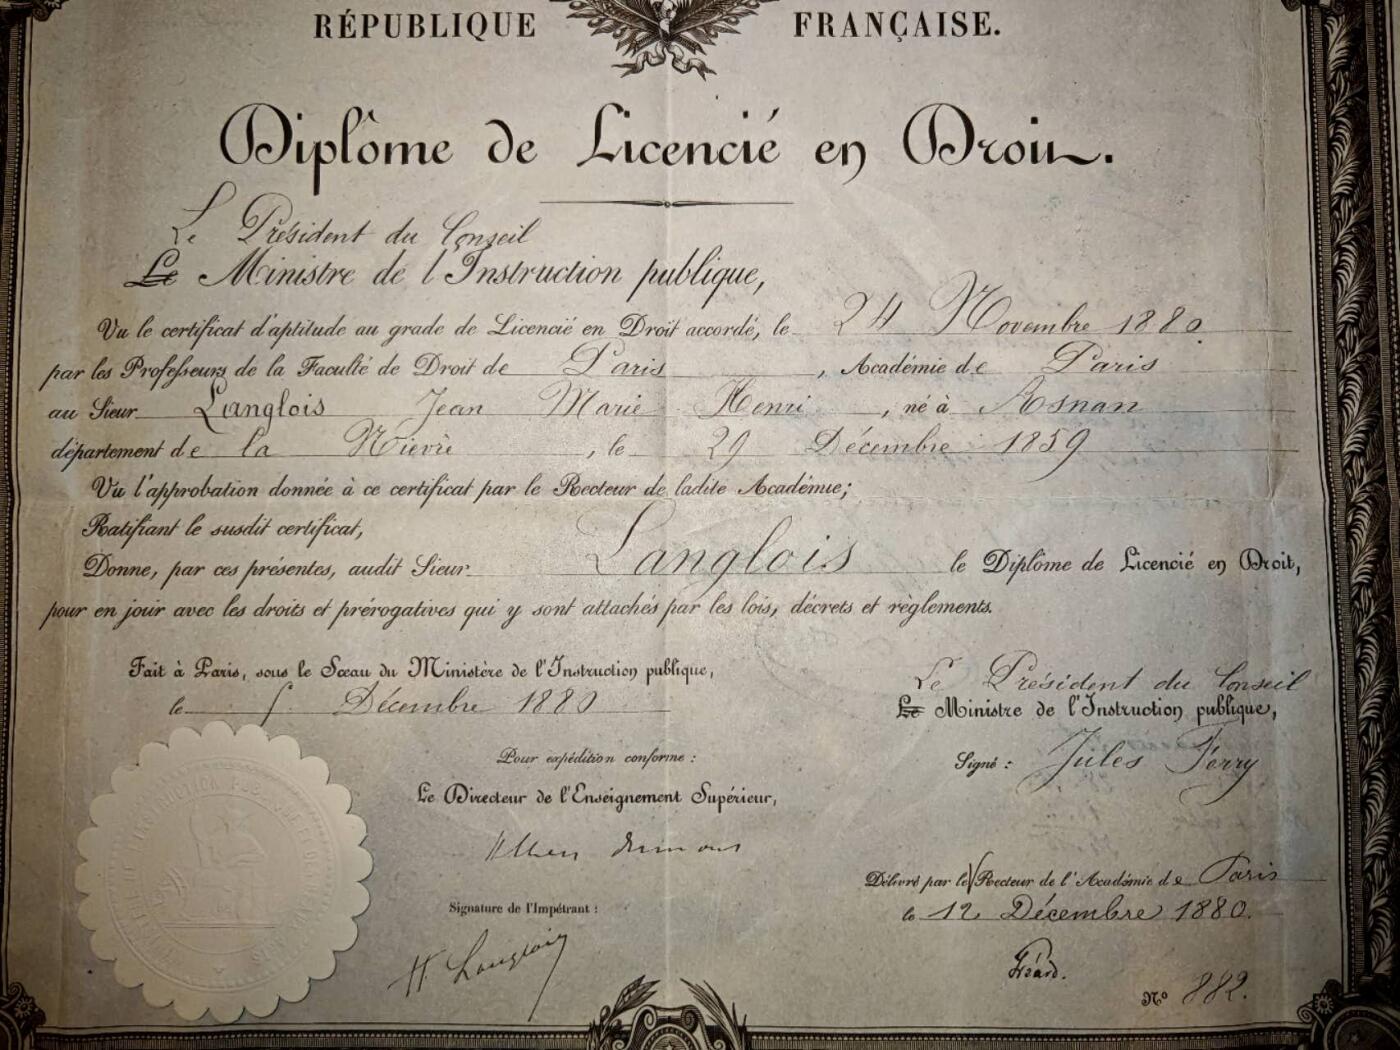 RÉPUBLIQUE FRANÇAISE.
Diplôme de Licencié en Droit.
Le Président du Conseil
Le Ministre de l'Instruction publique,
Vu le certificat d'aptitude au grade de Licencié en Droit accordé, le 24 Novembre 1880.
par les Professeurs de la Faculté de Droit de Paris, Académie de Paris
au Sieur Langlois Jean Marie Henri, né à Asnan
département de la Nièvre, le 29 Décembre 1859
Vu l'approbation donnée à ce certificat par le Recteur de ladite Académie;
Ratifiant le susdit certificat,
Donne, par ces présentes, audit Sieur Langlois le Diplôme de Licencié en Droit,
pour en jouir avec les droits et prérogatives qui y sont attachés par les lois, décrets et règlements.
Fait à Paris, sous le Sceau du Ministère de l'Instruction publique,
le Décembre 1880
Le Président du Conseil
Le Ministre de l'Instruction publique,
Signé : Jules Ferry
Pour expédition conforme :
Le Directeur de l'Enseignement Supérieur,
Signature de l'Impétrant :
H Langlois
Délivré par le Recteur de l'Académie de Paris
le 12 Décembre 1880.
Gréard.
N° 882.